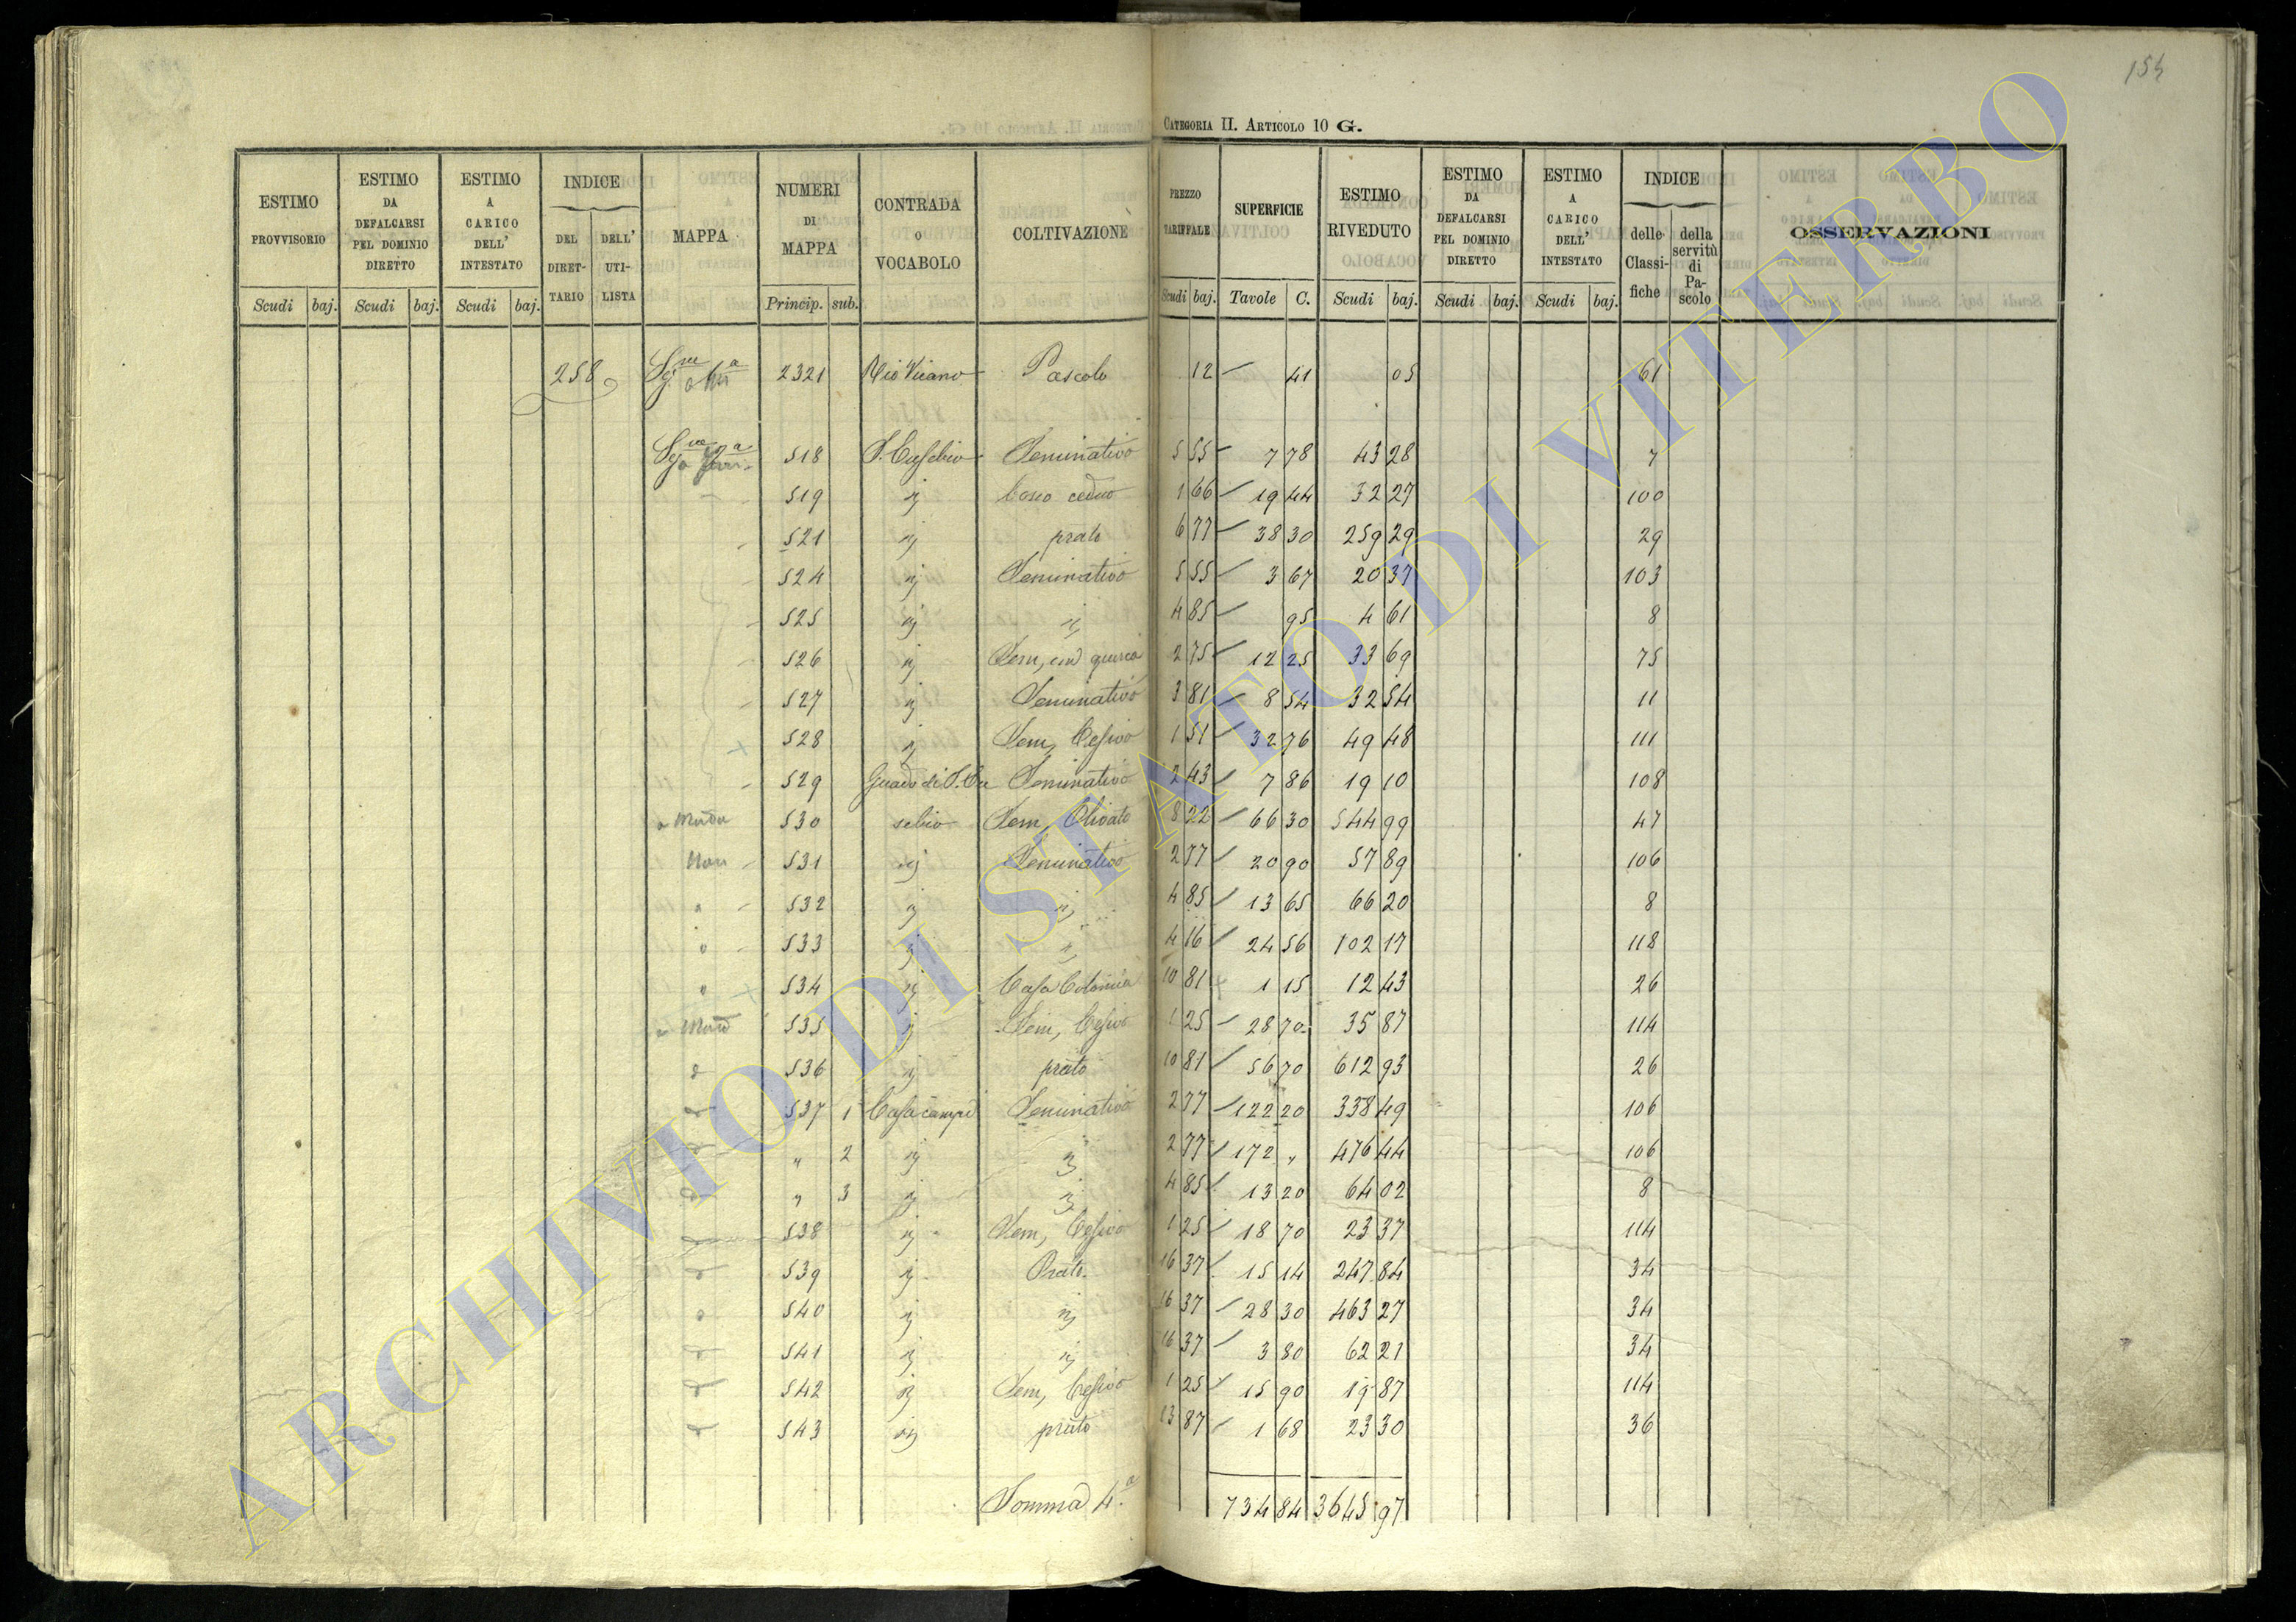 154
CATEGORIA II. ARTICOLO 10 G.
ESTIMO PROVVISORIO | ESTIMO DA DEFALCARSI PEL DOMINIO DIRETTO | ESTIMO A CARICO DELL' INTESTATO | INDICE DEL DIRET-TARIO | DELL' UTI-LISTA | MAPPA | NUMERI DI MAPPA | CONTRADA O VOCABOLO | COLTIVAZIONE | PREZZO TARIFFALE | SUPERFICIE | ESTIMO RIVEDUTO | ESTIMO DA DEFALCARSI PEL DOMINIO DIRETTO | ESTIMO A CARICO DELL' INTESTATO | INDICE delle Classi-fiche | della servitù di Pa-scolo | OSSERVAZIONI
Scudi baj. | Scudi baj. | Scudi baj. | Princip. sub. | Scudi baj. | Tavole C. | Scudi baj. | Scudi baj. | Scudi baj.
258 2321 Rio Vicano Pascolo 12 — 41 05 61
518 S. Eusebio Seminativo 5 55 — 7 78 43 28 7
519 ij bosco ceduo 1 66 — 19 44 32 27 100
521 ij prato 6 77 — 38 30 259 29 29
524 ij Seminativo 5 55 — 3 67 20 37 103
525 ij ij 4 85 — 95 4 61 8
526 ij Sem, 2 75 — 12 25 33 69 75
527 ij Seminativo 3 81 — 8 54 32 54 11
528 ij Sem, Cesivo 1 51 — 32 76 49 48 111
529 Guado di S. Eu Seminativo 2 43 — 7 86 19 10 108
530 sebio Sem, Olivato 8 22 — 66 30 544 99 47
531 ij Seminativo 2 77 — 20 90 57 89 106
532 ij ij 4 85 — 13 65 66 20 8
533 ij ij 4 16 — 24 56 102 17 118
534 ij Casa Colonica 10 81 1 15 12 43 26
535 ij Sem, Cesivo 1 25 — 28 70 35 87 114
536 ij prato 10 81 — 56 70 612 93 26
537 1 Casacampi Seminativo 2 77 — 122 20 338 49 106
" 2 ij ij 2 77 — 172 " 476 44 106
" 3 ij ij 4 85 — 13 20 64 02 8
538 ij Sem, Cesivo 1 25 — 18 70 23 37 114
539 ij Prato 16 37 15 14 247 84 34
540 ij ij 16 37 — 28 30 463 27 34
541 ij ij 16 37 — 3 80 62 21 34
542 ij Sem, Cesivo 1 25 — 15 90 19 87 114
543 ij prato 13 87 — 1 68 23 30 36
Somma 4.a 734 84 3645 97
ARCHIVIO DI STATO DI VITERBO